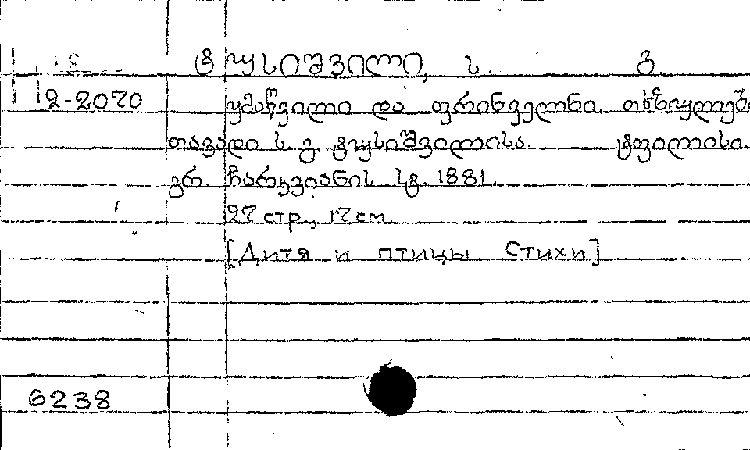 ტუსიშვილი, ს. გ.
2-2070 ყმაწვილი და ფრინველნი. თხზულება
თავადი ს. გ. ტუსიშვილისა. ტფილისი.
გრ. ჩარკვიანის სტ. 1881.
27 стр., 17 см.
[Дитя и птицы Стихи]
6238